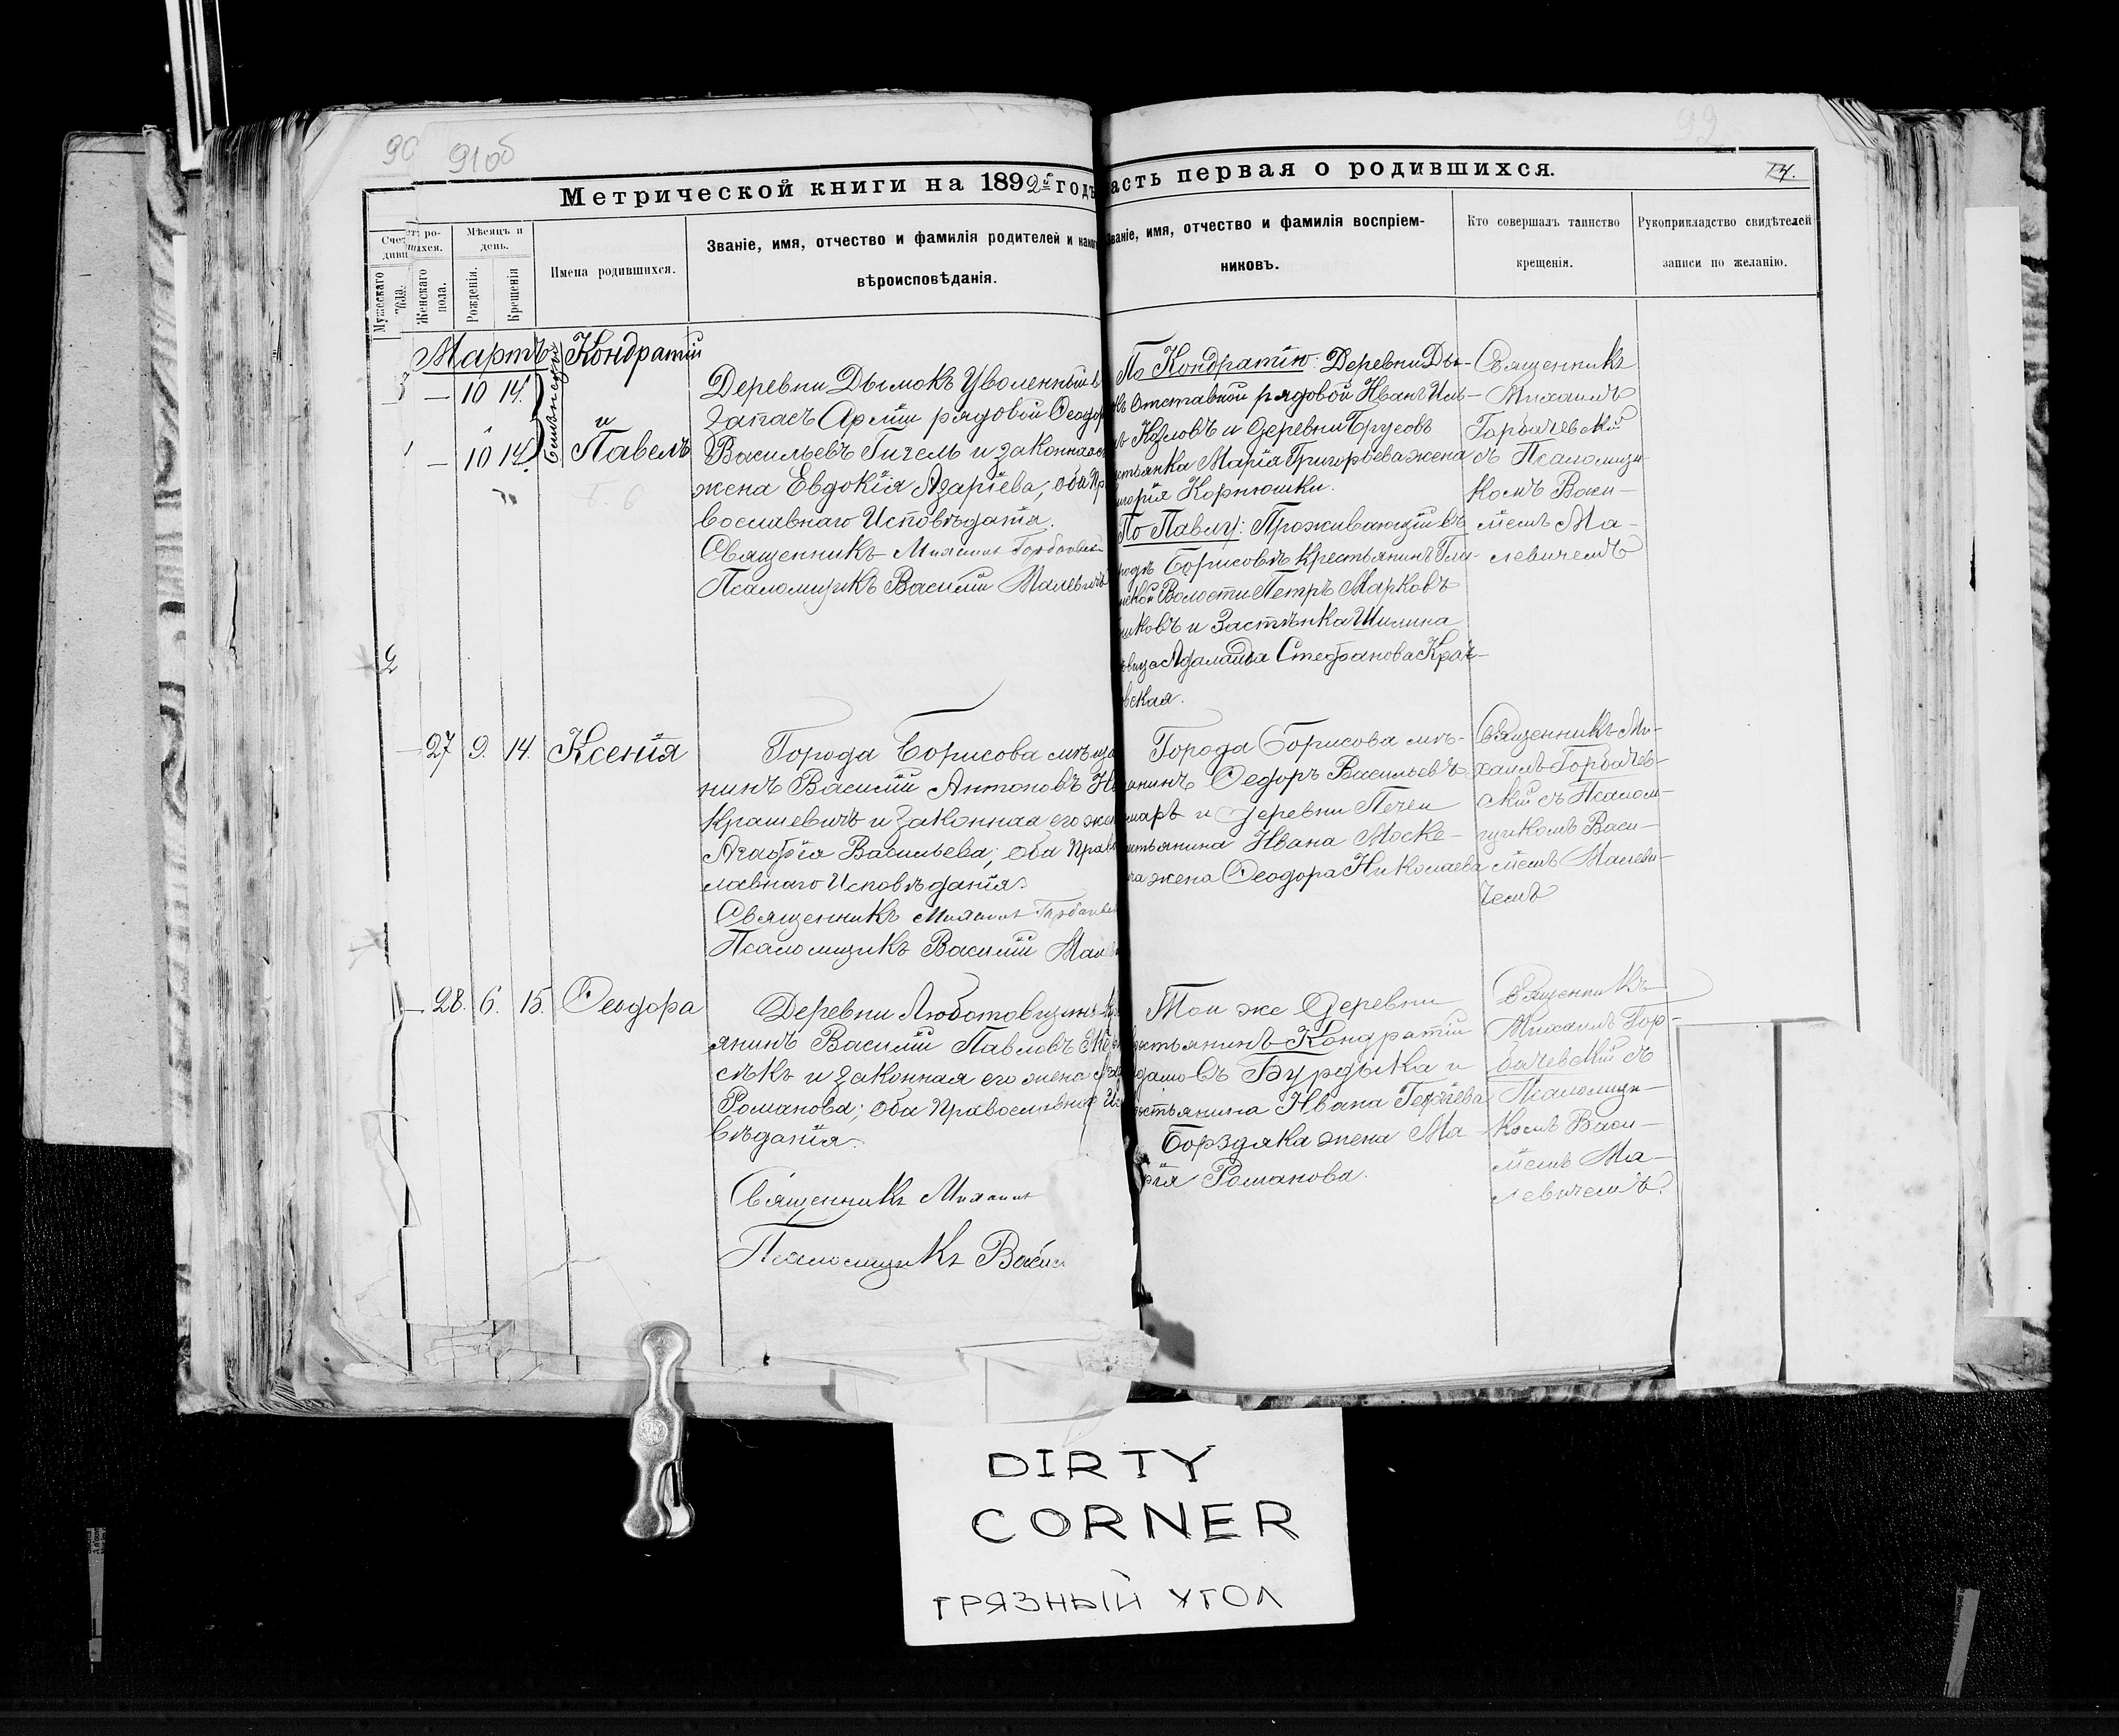 90 91 об
92
Метрической книги на 1892й годъ
асть первая о родившихся.
14.
Мужескаго
Женскаго пола.
Мѣсяцъ и день.
Рожденія.
Крещенія
Имена родившихся.
Званіе, имя, отчество и фамилія родителей и како
вѣроисповѣданія.
Званіе, имя, отчество и фамилія воспріем-
никовъ.
Кто совершалъ таинство
крещенія.
Рукоприкладство свидѣтелей
записи по желанію.
Мартъ
— 10 14.
— 10 14.
близнецы
Кондратій
и
Павелъ
Деревни Дымокъ Уволенный в
запасъ Арміи рядовой Ѳеодор
Васильевъ Гигель и законная
жена Евдокія Азаріева; оба Пр
вославнаго Исповѣданія.
Священникъ Михаилъ Горбачевскі
Псаломщикъ Василій Малевичъ
По Кондратію: Деревни Ды-
къ Отставной рядовой Иванъ Иль-
Козловъ и деревни Брусовъ
стьянка Марія Григорьева жена
Корнюшки.
По Павлу: Проживающій въ
родѣ Борисовѣ крестьянинъ
Волости Петръ Марковъ
иковъ и Застѣнка Шилина
Стефанова Кра
вская.
Священникъ
Михаилъ
Горбачевскій
съ Псаломщи-
комъ Васи-
ліемъ Ма-
левичемъ
— 27 9. 14. Ксенія
Города Борисова мѣща
нинъ Василій Антоновъ
Крашевичъ и законная его жен
Агафія Васильева; оба Право
славнаго Исповѣданія.
Священникъ Михаилъ Горбачевс
Псаломщикъ Василій Мал
Города Борисова мѣ-
анинъ Ѳеодоръ Васильевъ
маръ и деревни Печеи
стьянина Ивана Моске-
ча жена Ѳеодора Николаева
Священникъ Ми-
хаилъ Горбачев-
скій съ Псалом-
щикомъ Васи-
ліемъ Малеви-
чемъ
— 28. 6. 15. Ѳеодора
Деревни Люботовщины
янинъ Василій Павловъ
сѣкъ и законная его жена
Романова; оба Православнаго Ис
вѣданія.
Священникъ Михаилъ
Псаломщикъ Васил
Той же Деревни
рестьянинъ Кондратій
Бурдыка и
рестьянина Ивана Георгіева
Борздяка жена Ма-
рія Романова.
Священникъ
Михаилъ Гор-
бачевскій съ
Псаломщи-
комъ Васи-
ліемъ Ма-
левичемъ.
DIRTY
CORNER
ГРЯЗНЫЙ УГОЛ